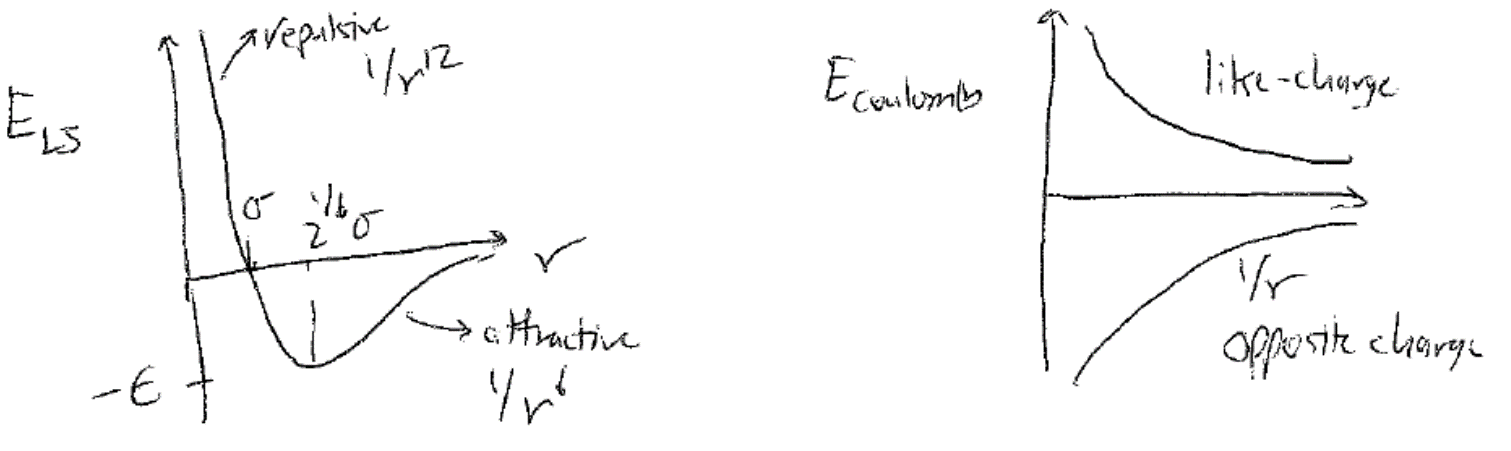 repulsive
1/r^12
E_LJ
σ
2^1/6 σ
r
attractive
1/r^6
-ϵ
E_coulomb
like-charge
1/r
opposite charge